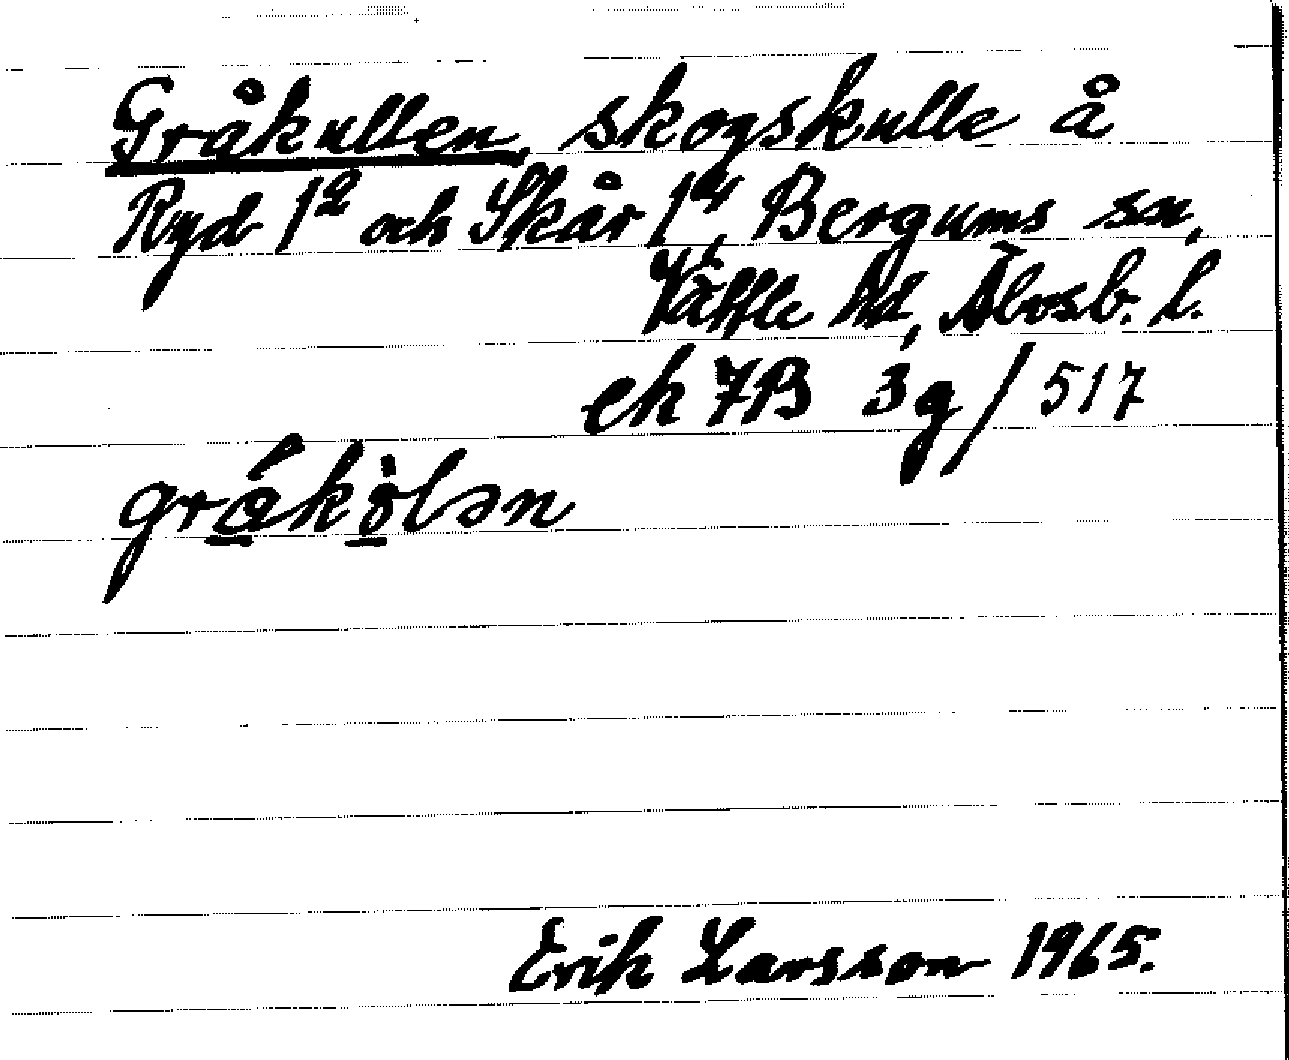 Gråkullen, skogskulle å
Ryd 1² och Skår 1⁴, Bergums sn,
Vättle hd, Älvsb. l.
ek 7B 3g/517
grákòlən
Erik Larsson 1965.